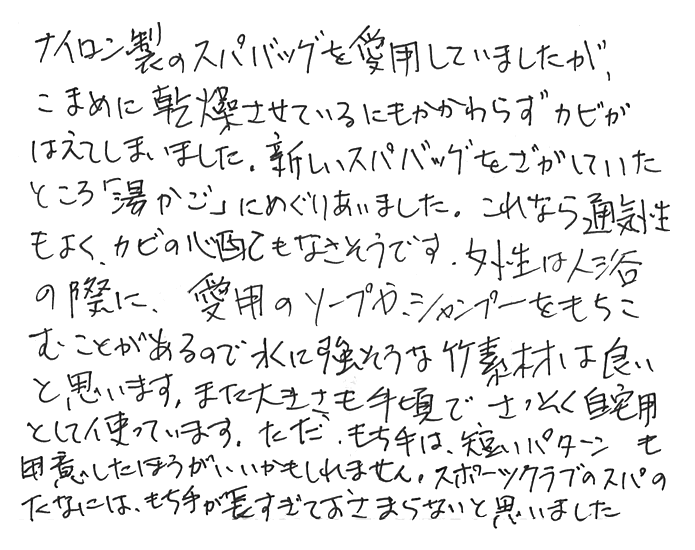 ナイロン製のスパバッグを愛用していましたが、
こまめに乾燥させているにもかかわらずカビが
はえてしまいました。新しいスパバッグをさがしていた
ところ「湯かご」にめぐりあいました。これなら通気性
もよく、カビの心配もなさそうです。女性は入浴
の際に、愛用のソープや、シャンプーをもちこ
むことがあるので水に強そうな竹素材は良い
と思います。また大きさも手頃でさっそく自宅用
として使っています。ただ、もち手は、短いパターンも
用意したほうがいいかもしれません。スポーツクラブのスパの
たなには、もち手が長すぎておさまらないと思いました